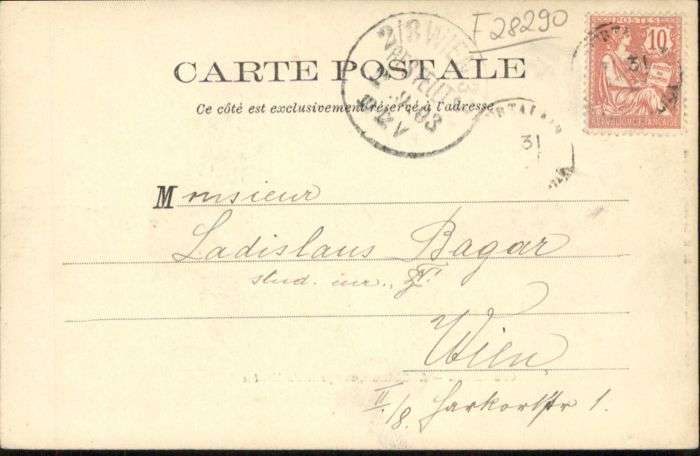 F 28290
POSTES
10
RÉPUBLIQUE FRANÇAISE
CARTE POSTALE
Ce côté est exclusivement réservé à l'adresse
31
31
Monsieur
Ladislaus Bagar
stud. iur.
Wien
II/8 Harkortstr 1.